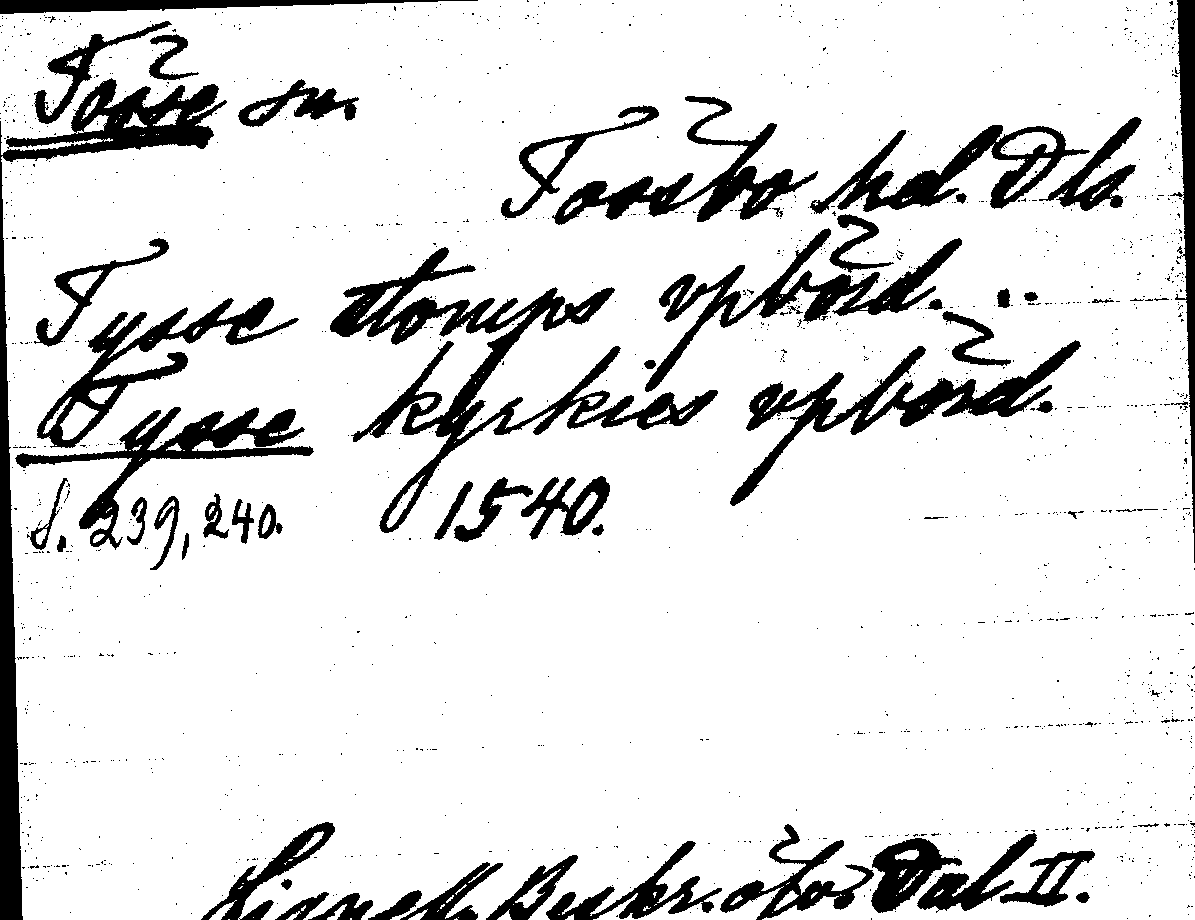 Tösse sn.
Tössbo hd. Dls.
Tysse stomps vpbörd. ..
Tysse kyrkies vpbörd.
S. 239, 240. 1540.
Lignell, Beskr. öfv. Dal II.